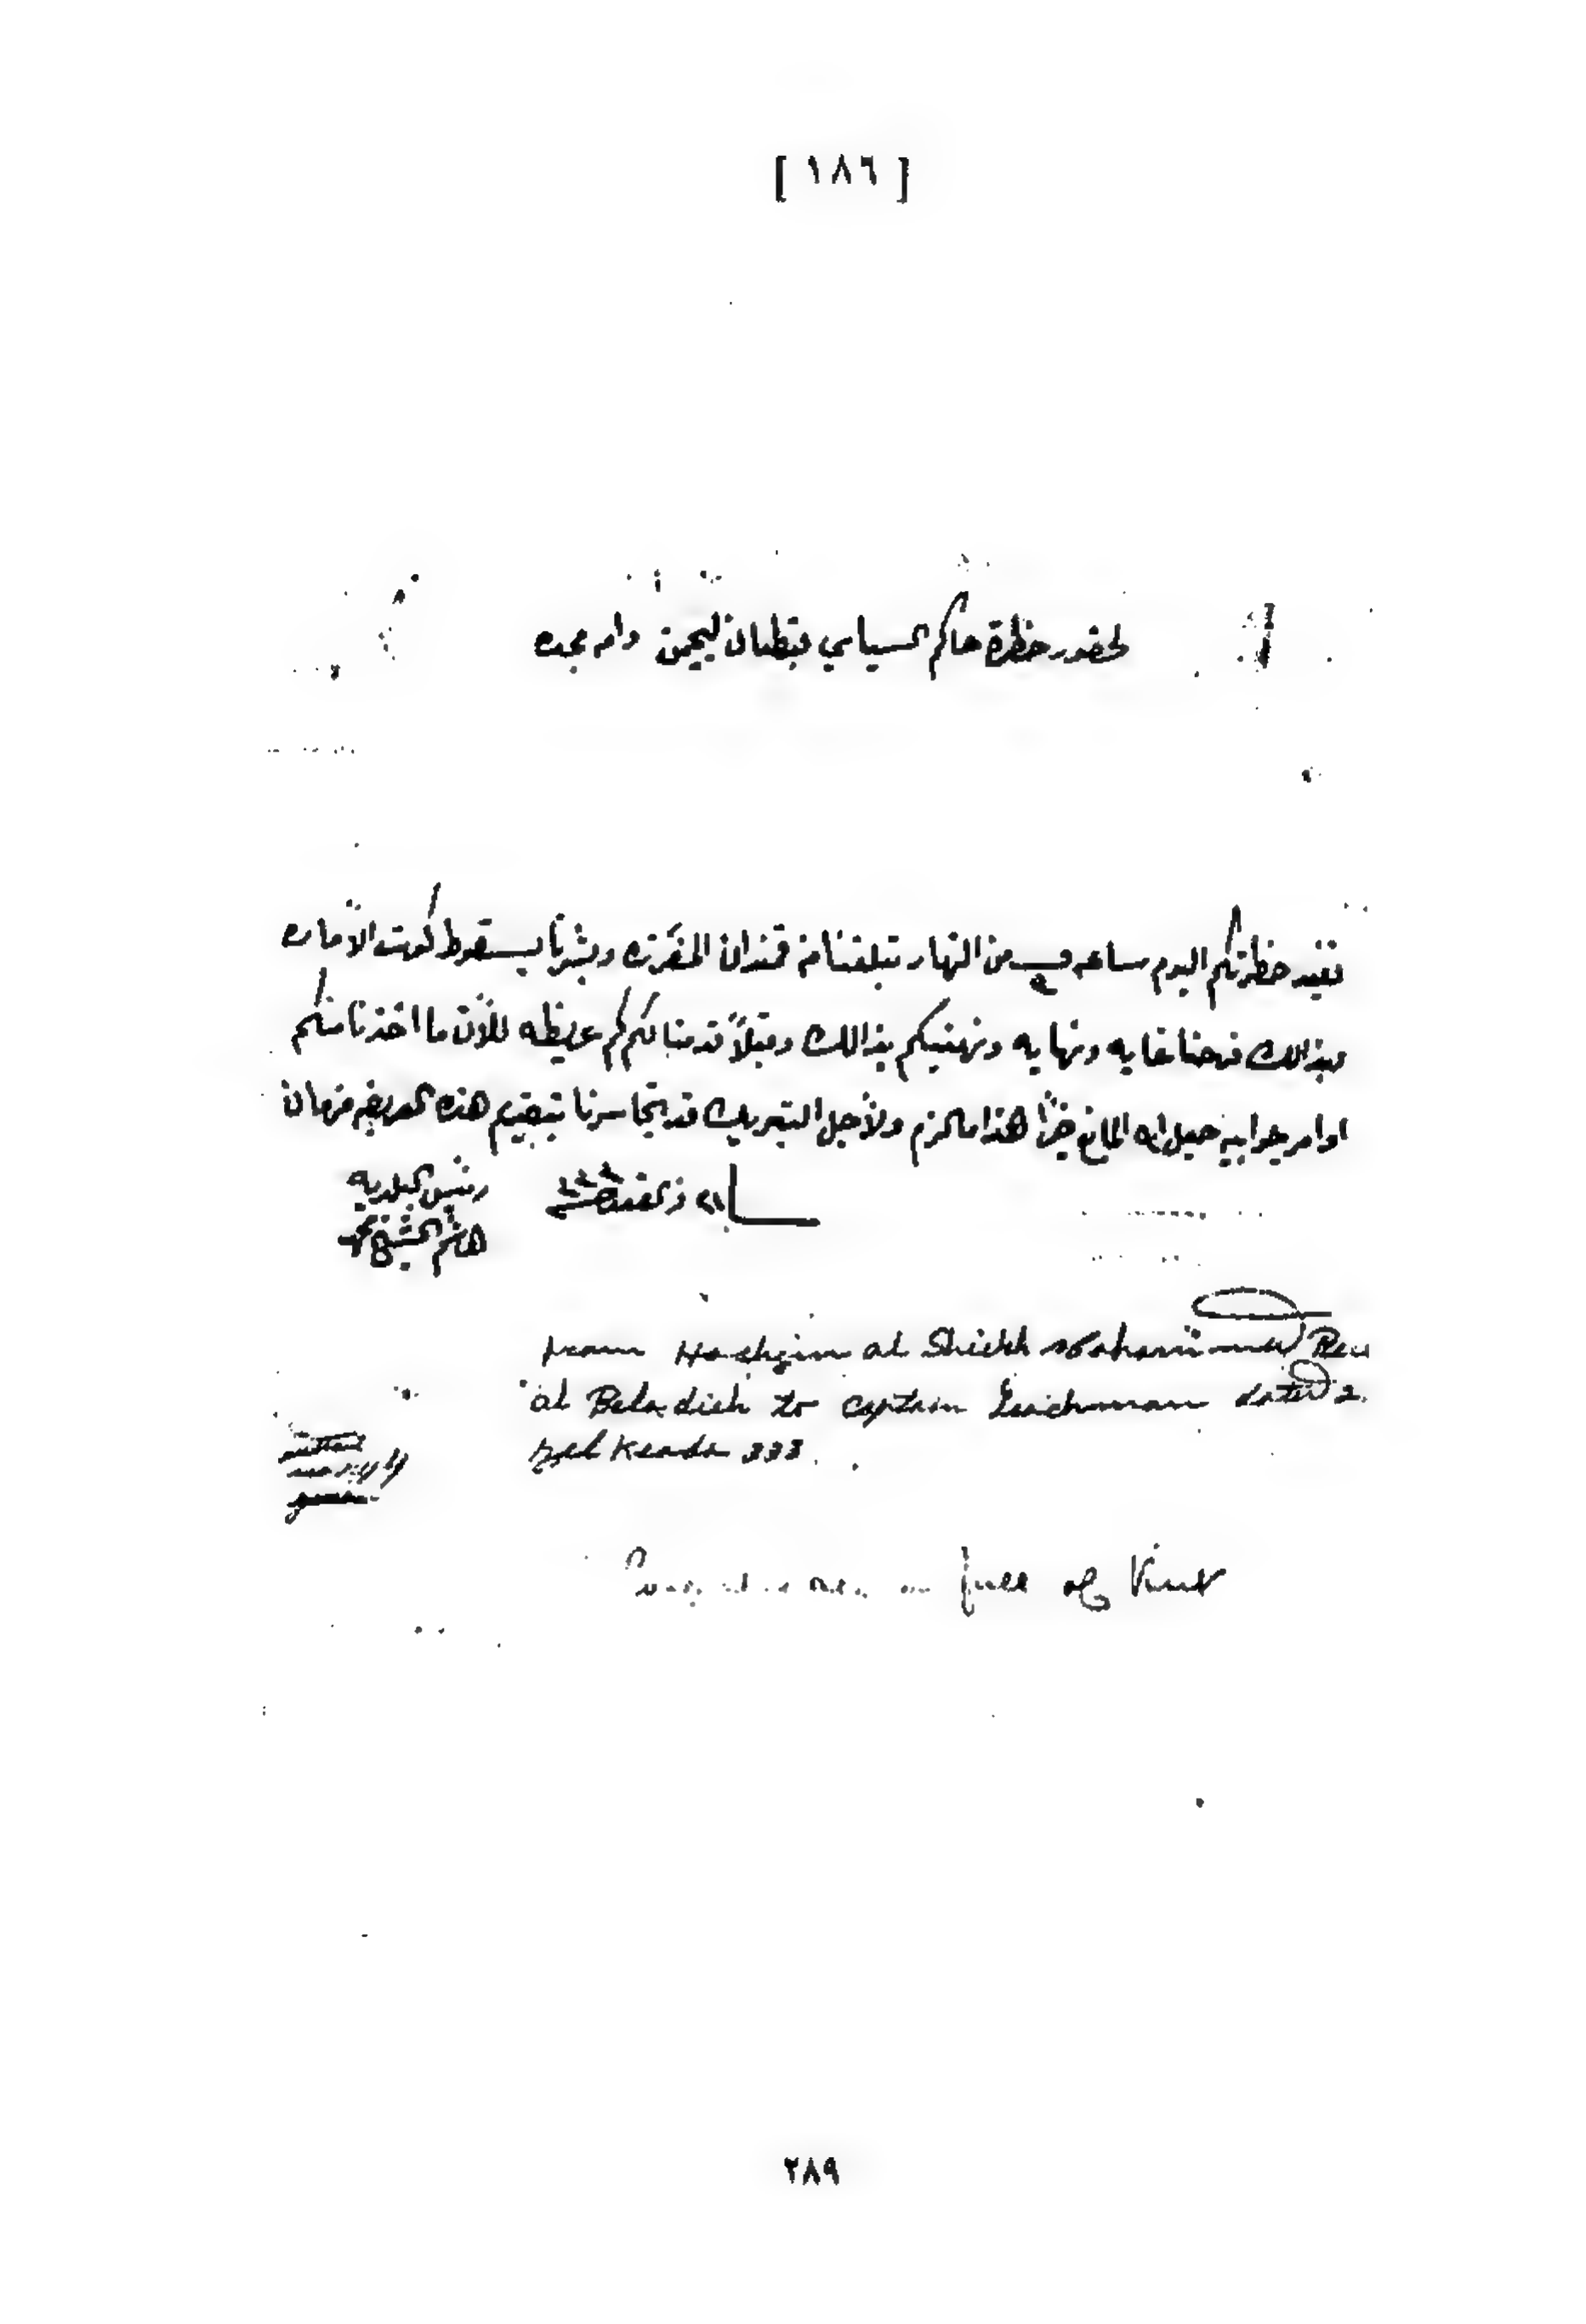 [ ١٨٦ ]
لحضور حظرة حاكم السياسي قبطان ليجمن دام مجده
نفيد حظرتكم اليوم ساعه من النهار تبلغنا من قمندان المفرزه وبشرنا بسقوط كوت الاماره
وبذالك فرحنا غايه ونهايه ونهنيكم بذالك وقبلاً قدمنا لكم عريظه للآن ما اخذنا منكم
اوامر جوابيه جعل الله المانع خيراً هذا مالزم ولأجل التبريك قد تجاسرنا بتقديم هذه العريضه فرمان
٢١ ذي القعده ٣٣٣
رئيس البلديه
هاشم الشيخ محمد
from Hachgim al Shiekh Mohammed Reis
al Beladieh to Captain Leichman dated 2
Zel Keada 333.
on fall of Kut
٢٨٩